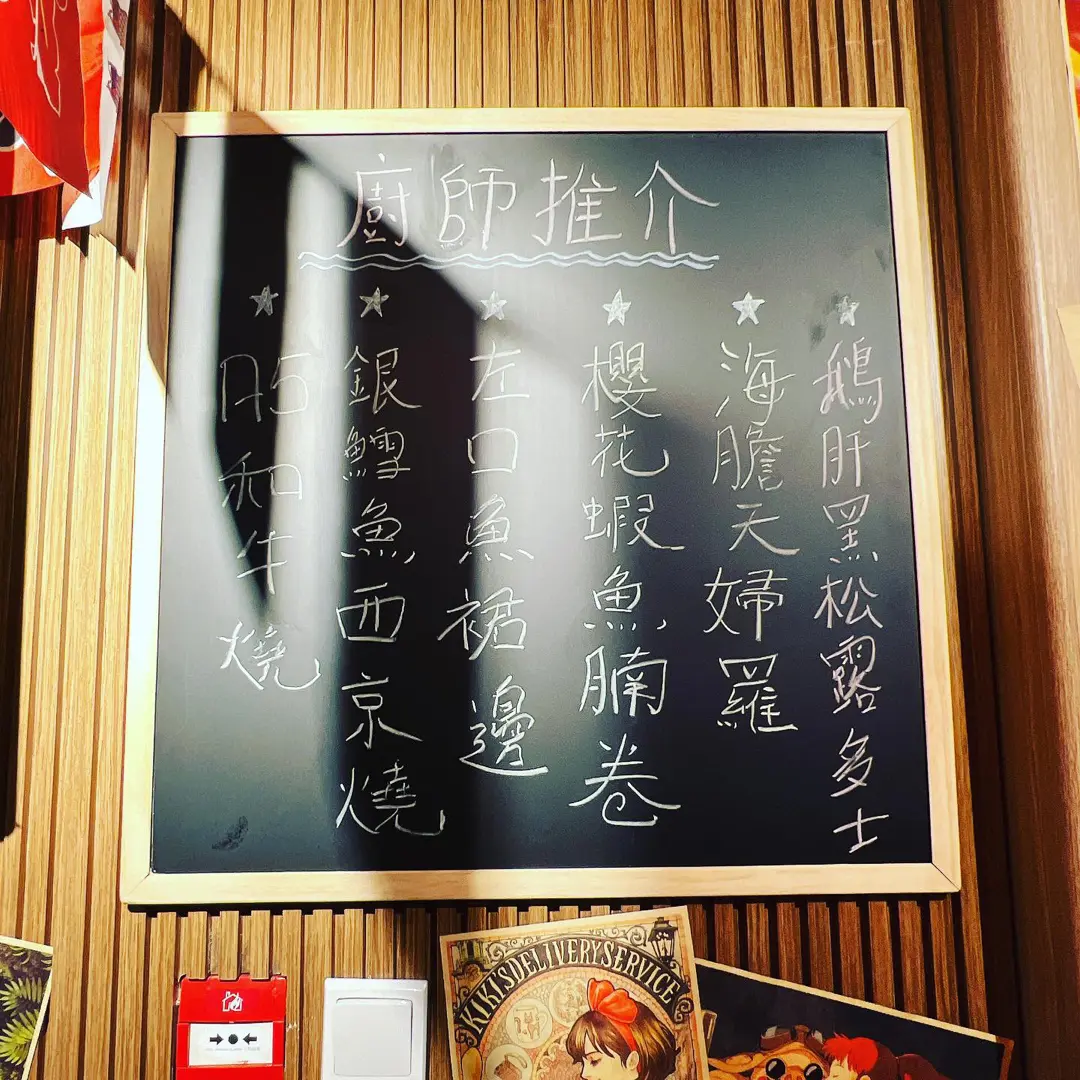 廚師推介
鵝肝黑松露多士
海膽天婦羅
櫻花蝦魚腩卷
左口魚裙邊
銀鱈魚西京燒
A5和牛燒
KIKI'S DELIVERY SERVICE